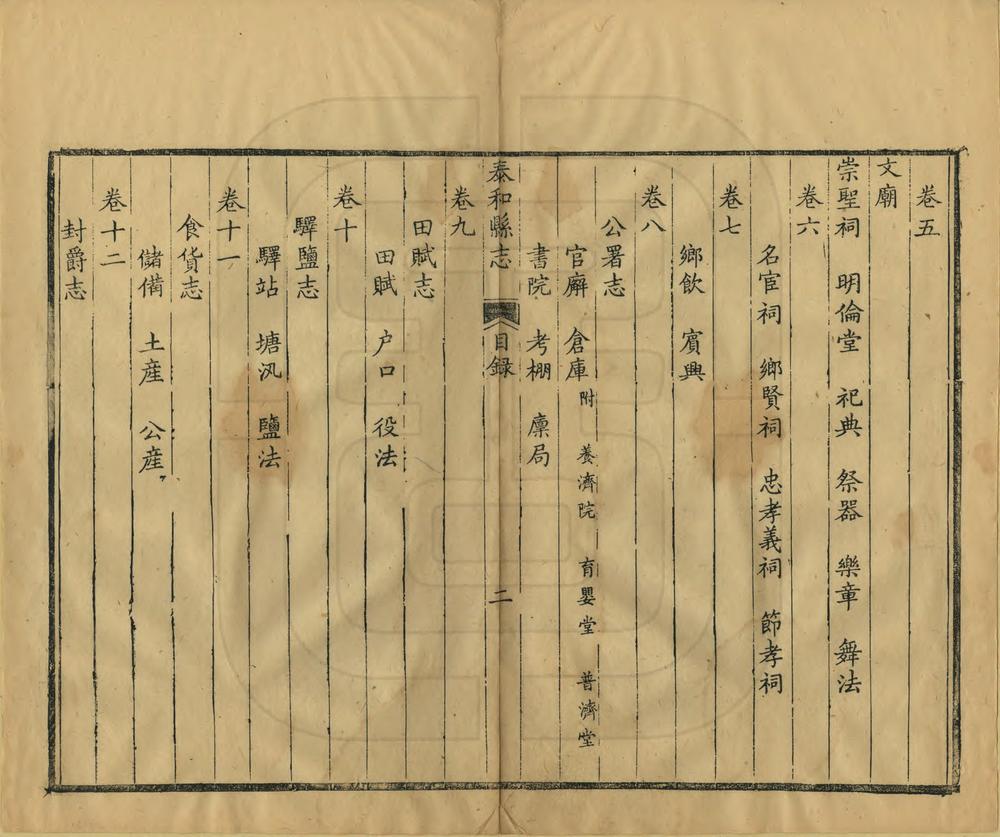 卷五
文廟
崇聖祠 明倫堂 祀典 祭器 樂章 舞法
卷六
名宦祠 鄉賢祠 忠孝義祠 節孝祠
卷七
鄉飲 賓興
卷八
公署志
官廨 倉庫 附 養濟院 育嬰堂 普濟堂
書院 考棚 廩局
泰和縣志 目録 二
卷九
田賦志
田賦 户口 役法
卷十
驛鹽志
驛站 塘汛 鹽法
卷十一
食貨志
儲備 土産 公産
卷十二
封爵志